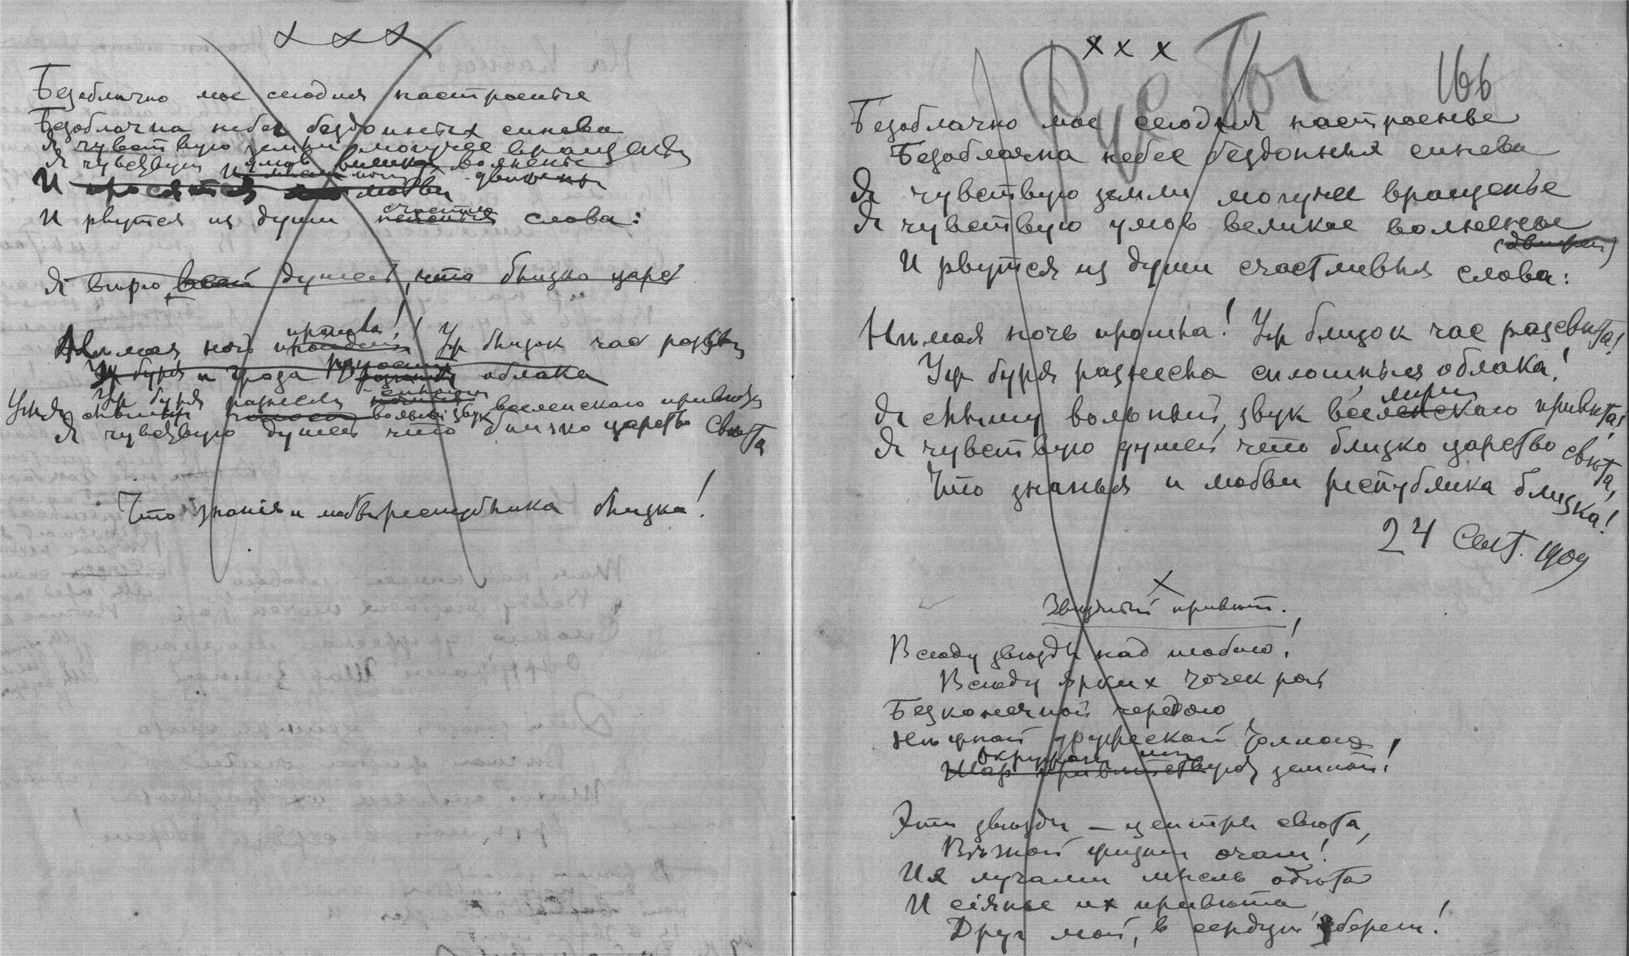 х х х
Безоблачно мое сегодня настроенье
Безоблачна небес бездонныхъ синева
Я чувствую земли могучее вращенье
Я чувствую умов великое волненье
И просятся любви
И рвутся из души счастли слова:
Я вѣрю всей душей, что близко царс
Нѣмая ночь прошла! Уж близок час разсвѣ
Уж буря и гроза разнесла облака
Уж буря разнесла сплошныя
Уж я слышу вольный звук вселенскаго привѣта
Я чувствую душей что близко царство свѣта
Что знанія и любви республика близка!
х х х
Густы
166
Безоблачно мое сегодня настроенье
Безоблачна небес бездонных синева
Я чувствую земли могучее вращенье
Я чувствую умов великое волненье
И рвутся из души счастливыя слова:
Нѣмая ночь прошла! Уж близок час разсвѣта!
Уж буря разнесла сплошныя облака!
мири
Я слышу вольный звук вселенскаго привѣта!
Я чувствую душей что близко царство свѣта,
Что знанья и любви республика близка!
24 Сент. 1909
х
Звѣздный привѣт.
Всюду звѣзды над тобою!
Всюду ярких точек рой
Безконечной чередою
Нѣжной дружеской толпою
Окружают шар
Шар привѣтствуя земной!
Эти звѣзды – центры свѣта,
Вѣчной жизни очаги!
Их лучами мысль одѣта
И сіянье их привѣта
Друг мой, в сердцѣ сбереги!